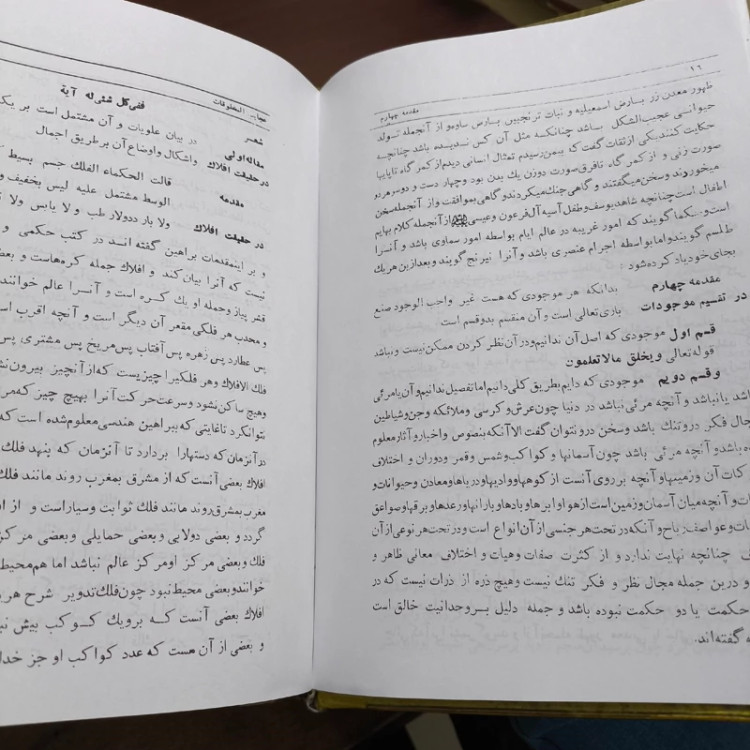 ۱۶
مقدمه چهارم
ظهور معدن زر بسارض اسمعیلیه و نبات ترنجبین بسارض ساوه‌و از آنجمله تسولد
حیوانی عجیب‌الشکل بساشد چنانکسه مثل آن کس ندیسده باشد چنانچسه
حکایت کنندیکی ازثقات گفت که بیمن‌رسیدم تمثال انسانی دیدم از کمر گاه تاپایها
صورت زنی و از کمر گاه تافرق صورت دوزن یک بدن بود و چهار دست و دوسر هردو
میخوردند وسخن میگفتند و گاهی جنك میکردند و گاهی بموافقت و از آنجمله سخن
اطفال است چنانچه شاهد یوسف و طفل آسیه آل فرعون و عیسی از آنجمله کلام بهایم
است و حکما گویند که امور غریبه در عالم ایام بواسطه امور سماوی باشد و آنسرا
طلسم گویند و اما بواسطه اجرام عنصری باشد و آنرا نیرنج گویند و بعد از بن هر یك
بجای خود یاد کرده شود :
مقدمه چهارم بدانکه هر موجودی که هست غیر واجب الوجود صنع
در تقسیم موجودات باری تعالی است و آن منقسم بدوقسم است
قسم اول موجودی که اصل آن ندانیم و در آن نظر کردن ممکن نیست و نباشد
قوله تعالی ویخلق مالا تعلمون
وقسم دویم موجودی که دایم بطریق کلی دانیم اما تفصیل ندانیم و آن یا مرئی
باشد یا نباشد و آنچه مرئی نباشد در دنیا چون عرش و کرسی و ملائکه و جن و شیاطین
مجال فکر در و تنك باشد و سخن در و نتوان گفت الا آنکه بنصوص و اخبار و آثار معلوم
باشد و آنچه مرئی باشد چون آسمانها و کواکب و شمس و قمر و دوران و اختلاف
کات آن و زمینها و آنچه بر روی آنست از کوهها و وادیها و دریاها و معادن و حیوانات و
و آنچه میان آسمان و زمین است از هوا و ابرها و بادها و بارانها و رعدها و برقها و صواعق
و عواصف ریاح و آنکه در تحت هر جنسی از آن انواع است و در تحت هر نوعی از آن
چنانچه نهایت ندارد و از کثرت صفات وهیات و اختلاف معانی ظاهر و
و درین جمله مجال نظر و فکر تنك نیست وهیچ ذره از ذرات نیست که در
حکمت یا دو حکمت نبوده باشد و جمله دلیل بسر وحدانیت خالق است
گفته‌اند.
عجایب المخلوقات
شعسر ففی کل شئی له آیة
مقاله اولی در بیان علویات و آن مشتمل است بر یك
در حقیقت افلاك واشکال واوضاع آن بر طریق اجمال
مقدمه قالت الحکماء الفلك جسم بسیط
در حقیقت افلاك الوسط مشتمل علیه لیس بخفیف و
ولا بار دولار طب و لا یابس ولا
و بر اینمقدمات براهین گفته انسد در کتب حکمی و
نیست که آنرا بیان کند و افلاك جمله کره هاست و بعض
قشر پیاز وجمله او یك کسره است و آنسرا عالم خوانند
و محدب هر فلکی مقعر آن دیگر است و آنچه اقرب است
پس عطارد پس زهره پس آفتاب پس مریخ پس مشتری پس
فلك الافلاك وهر فلکیرا چیزیست که از آنچیز بیرون نش
وهیچ ساکن نشود و سرعت حرکت آنرا بهیچ چیز که مر
نتوانکرد تاغایتی که ببراهین هندسی معلوم شده است که
در آنزمان که دستها را بردارد تا آنزمان که بنهد فلك
افلاك بعضی آنست که از مشرق بمغرب روند مانند فلك
مغرب بمشرق روند مانند فلك ثوابت و سیار است و از
گردد و بعضی دولابی و بعضی حمایلی و بعضی مرکز
فلك و بعضی مرکز او مرکز عالم نباشد اما هم محیط
خوانند و بعضی محیط نبود چون فلك تدویر شرح هر
افلاك بعضی آنست کسه بر و یك کسو کب بیش
و بعضی از آن هست که عدد کواکب او جز خدا